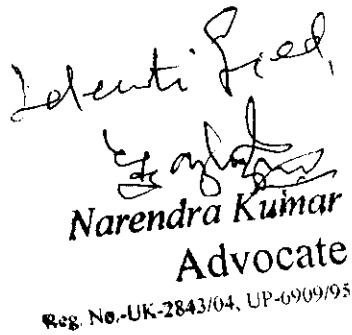 Identified,
Narendra Kumar
Advocate
Reg. No.-UK-2843/04, UP-6909/95